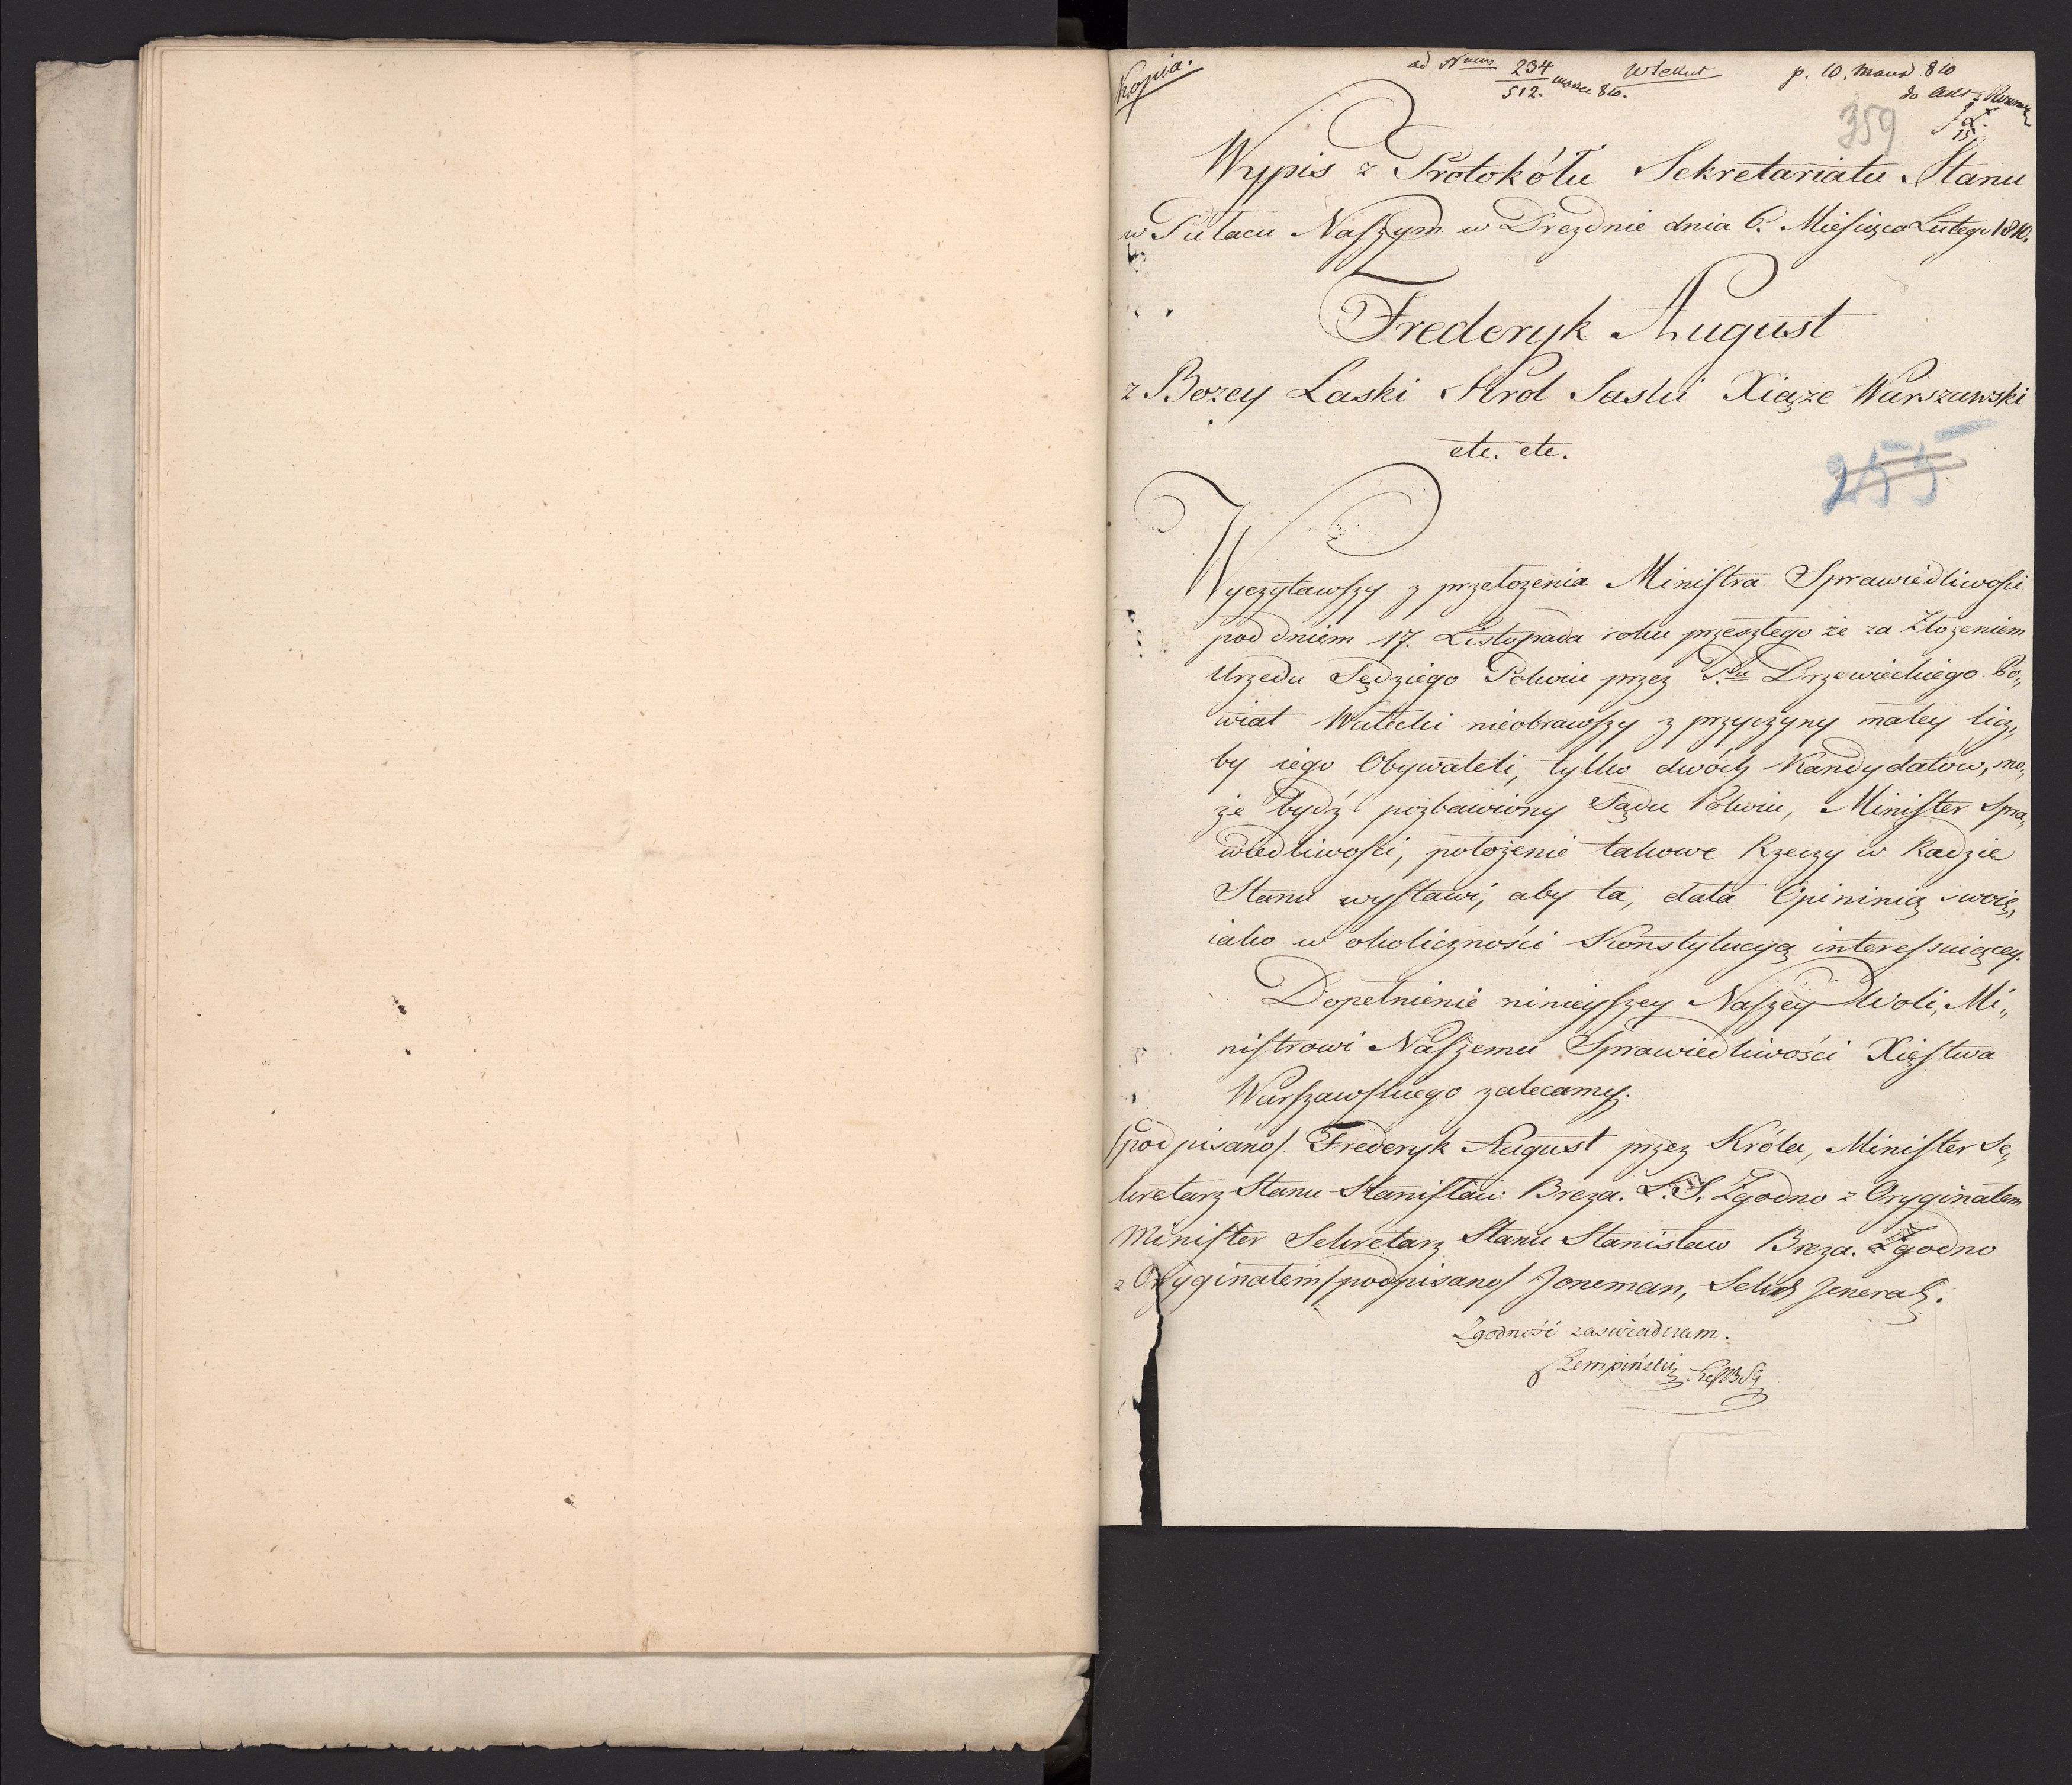 Kopia.
ad Nrum 234/512. marca 810. p. 10. marca 810
do Akt
359
Wypis z Protokółu Sekretariatu Stanu
w Pałacu Naszym w Dreźdnie dnia 6. Miesiąca Lutego 1810.
Frederyk August
z Bozey Łaski Krol Saski Xiąze Warszawski
etc. etc.
255
Wyczytawszy z przełożenia Ministra Sprawiedliwości
pod dniem 17. Listopada roku przeszłego że za złożeniem
Urzędu Sędziego Pokoiu przez Pa Drzewieckiego Po„
wiat Wałecki nieobrawszy z przyczyny małey licz„
by iego Obywateli, tylko dwóch Kandydatow, mo„
że bydź pozbawiony Sądu Pokoiu, Minister Spra„
wiedliwości, położenie takowe Rzeczy w Radzie
Stanu wystawi, aby ta, dała Opininią swoię,
iako w okoliczności Konstytucyą interessuiącey.
Dopełnienie ninieyszey Naszey Woli, Mi„
nistrowi Naszemu Sprawiedliwości Xięstwa
Warszawskiego zalecamy.
/podpisano/ Frederyk August przez Króla, Minister Se„
kretarz Stanu Stanisław Breza. L.S. Zgodno z Oryginałem
Minister Sekretarz Stanu Stanisław Breza. Zgodno
z Oryginałem /podpisano/ Joneman, Sekr Jeneral.
Zgodność zaswiadczam.